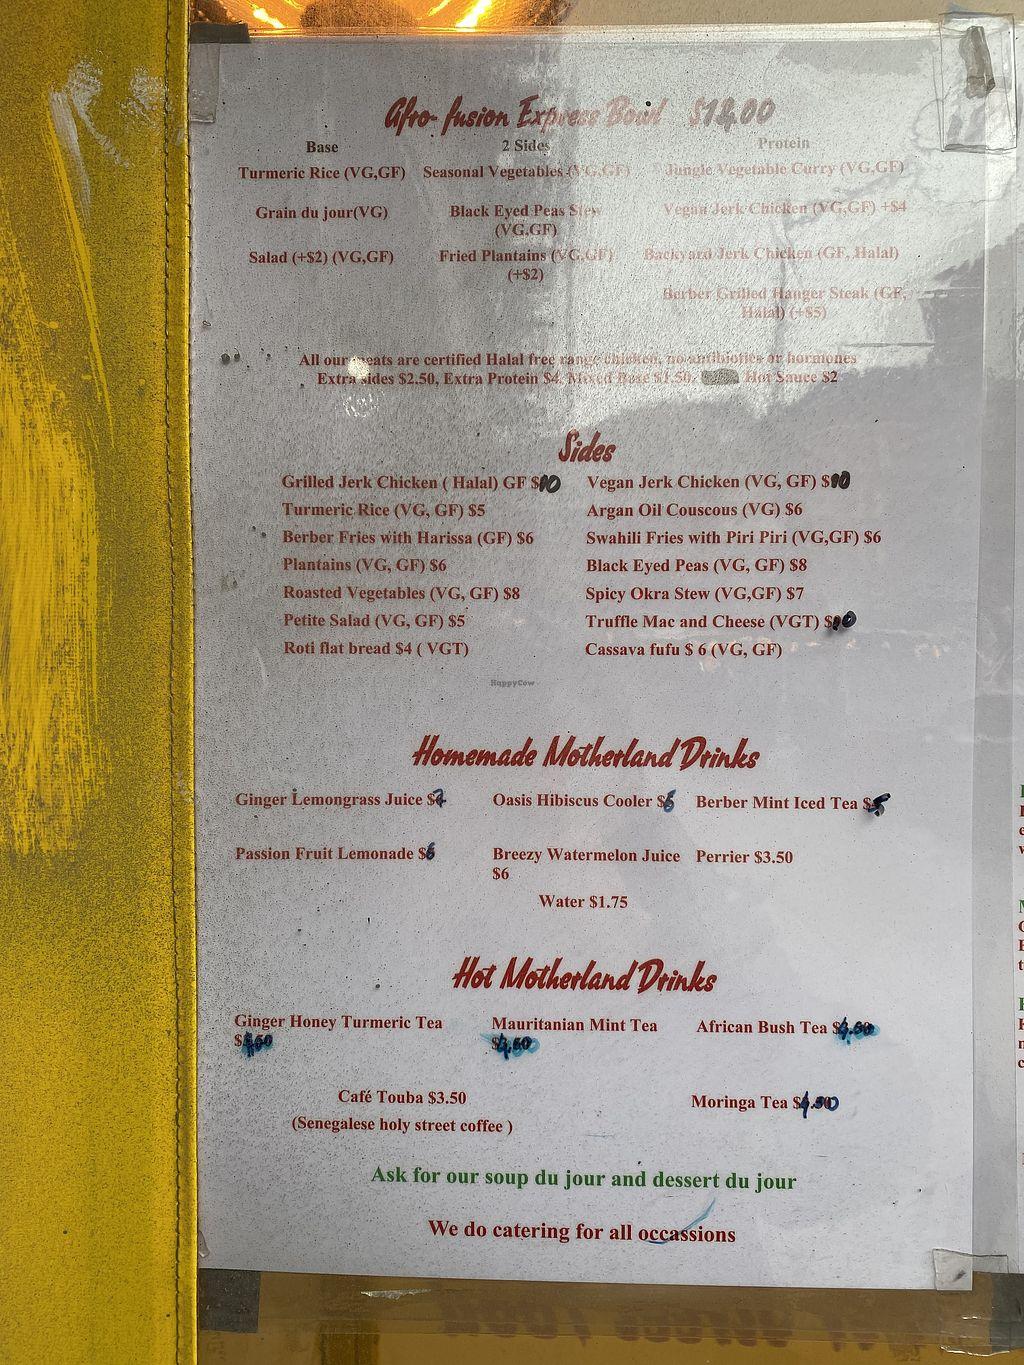 Afro-fusion Express Bowl $14.00
Base 2 Sides Protein
Turmeric Rice (VG,GF) Seasonal Vegetables (VG,GF) Jungle Vegetable Curry (VG,GF)
Grain du jour(VG) Black Eyed Peas Stew (VG,GF) Vegan Jerk Chicken (VG,GF) +$4
Salad (+$2) (VG,GF) Fried Plantains (VG,GF) (+$2) Backyard Jerk Chicken (GF, Halal)
Berber Grilled Hanger Steak (GF, Halal) (+$5)
All our meats are certified Halal free range chicken, no antibiotics or hormones
Extra sides $2.50, Extra Protein $4, Mixed Base $1.50, Hot Sauce $2
Sides
Grilled Jerk Chicken ( Halal) GF $10 Vegan Jerk Chicken (VG, GF) $10
Turmeric Rice (VG, GF) $5 Argan Oil Couscous (VG) $6
Berber Fries with Harissa (GF) $6 Swahili Fries with Piri Piri (VG,GF) $6
Plantains (VG, GF) $6 Black Eyed Peas (VG, GF) $8
Roasted Vegetables (VG, GF) $8 Spicy Okra Stew (VG,GF) $7
Petite Salad (VG, GF) $5 Truffle Mac and Cheese (VGT) $10
Roti flat bread $4 ( VGT) Cassava fufu $ 6 (VG, GF)
HappyCow
Homemade Motherland Drinks
Ginger Lemongrass Juice $ Oasis Hibiscus Cooler $6 Berber Mint Iced Tea $5
Passion Fruit Lemonade $6 Breezy Watermelon Juice $6 Perrier $3.50
Water $1.75
Hot Motherland Drinks
Ginger Honey Turmeric Tea $ Mauritanian Mint Tea $ African Bush Tea $
Café Touba $3.50 Moringa Tea $
(Senegalese holy street coffee )
Ask for our soup du jour and dessert du jour
We do catering for all occassions